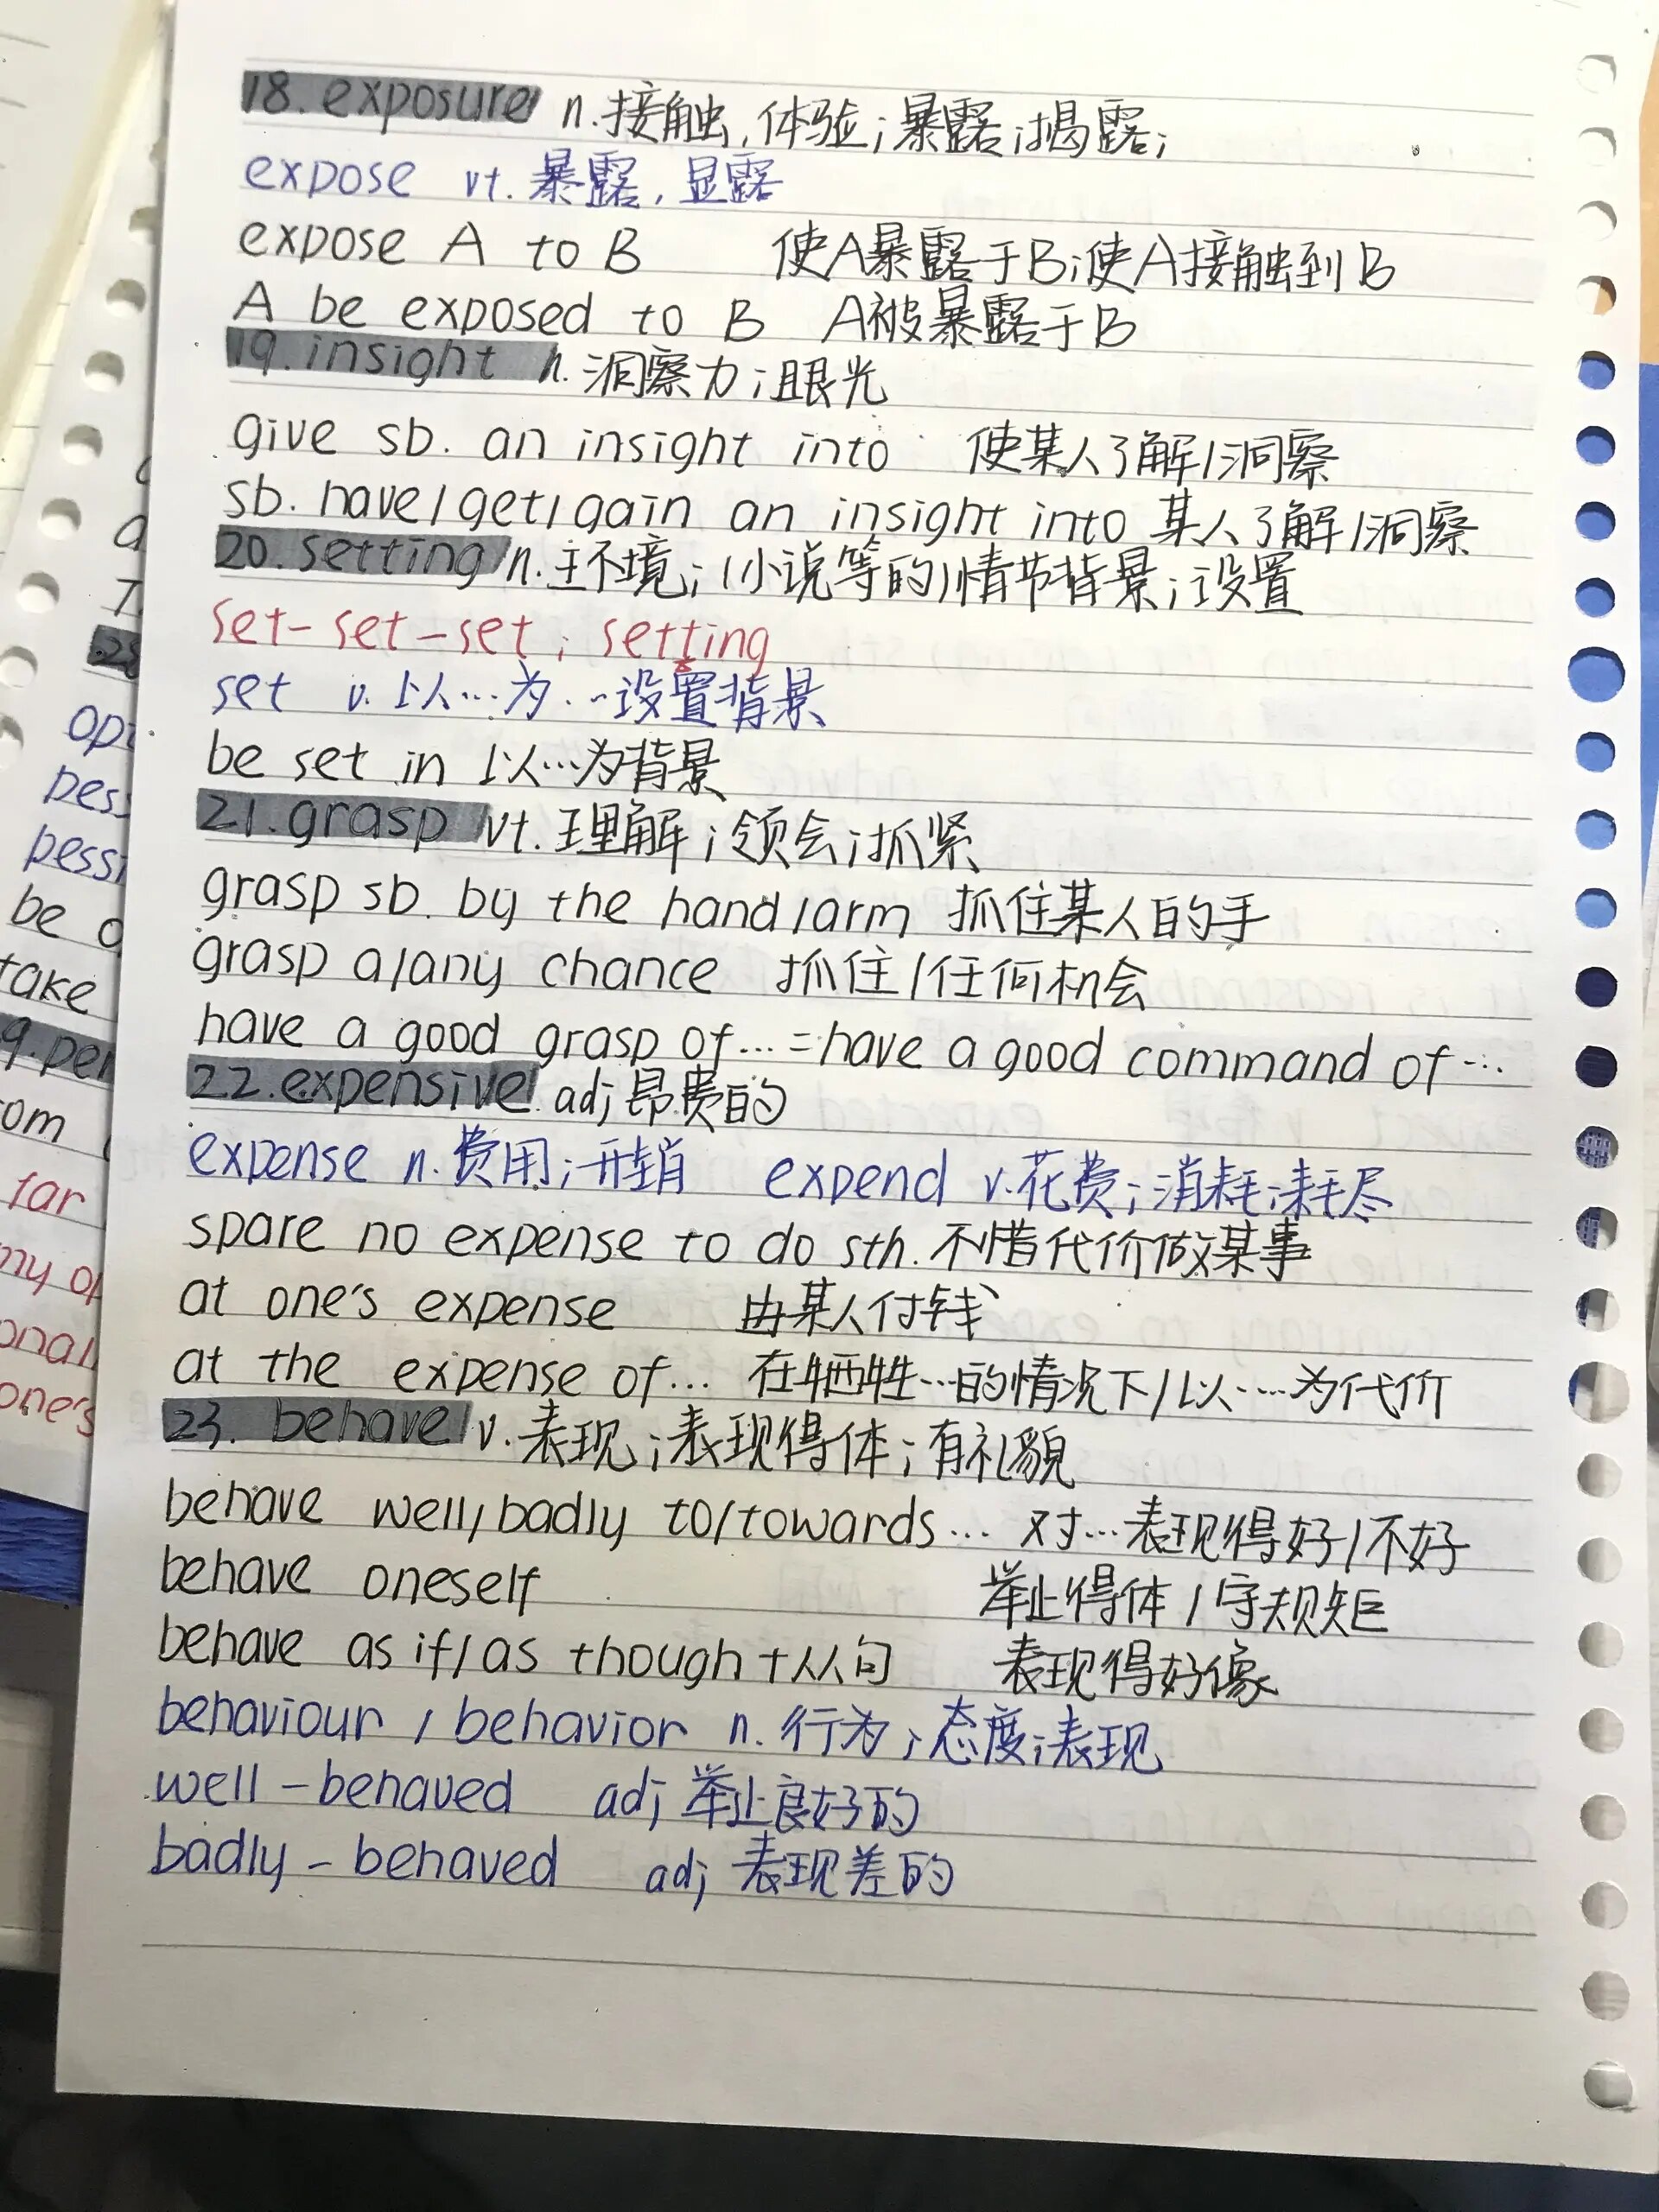 18. exposure n.接触,体验;暴露;揭露;
expose vt.暴露,显露
expose A to B 使A暴露于B;使A接触到B
A be exposed to B A被暴露于B
19. insight n.洞察力;眼光
give sb. an insight into 使某人了解/洞察
sb. have/get/gain an insight into 某人了解/洞察
20. setting n.环境;(小说等的)情节背景;设置
set-set-set; setting
set v.以…为…设置背景
be set in 以…为背景
21. grasp vt.理解;领会;抓紧
grasp sb. by the hand/arm 抓住某人的手
grasp a/any chance 抓住/任何机会
have a good grasp of…=have a good command of…
22. expensive. adj 昂贵的
expense n.费用;开销 expend v.花费;消耗;耗尽
spare no expense to do sth.不惜代价做某事
at one's expense 由某人付钱
at the expense of… 在牺牲…的情况下/以……为代价
23. behave v.表现;表现得体;有礼貌
behave well/badly to/towards… 对…表现得好/不好
behave oneself 举止得体/守规矩
behave as if/as though+从句 表现得好像
behaviour/behavior n.行为;态度;表现
well-behaved adj 举止良好的
badly-behaved adj 表现差的
take
be
far
one's